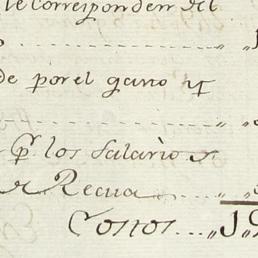 le Corresponden del
de por el gano y
pr. los Salarios
Recua
Costos